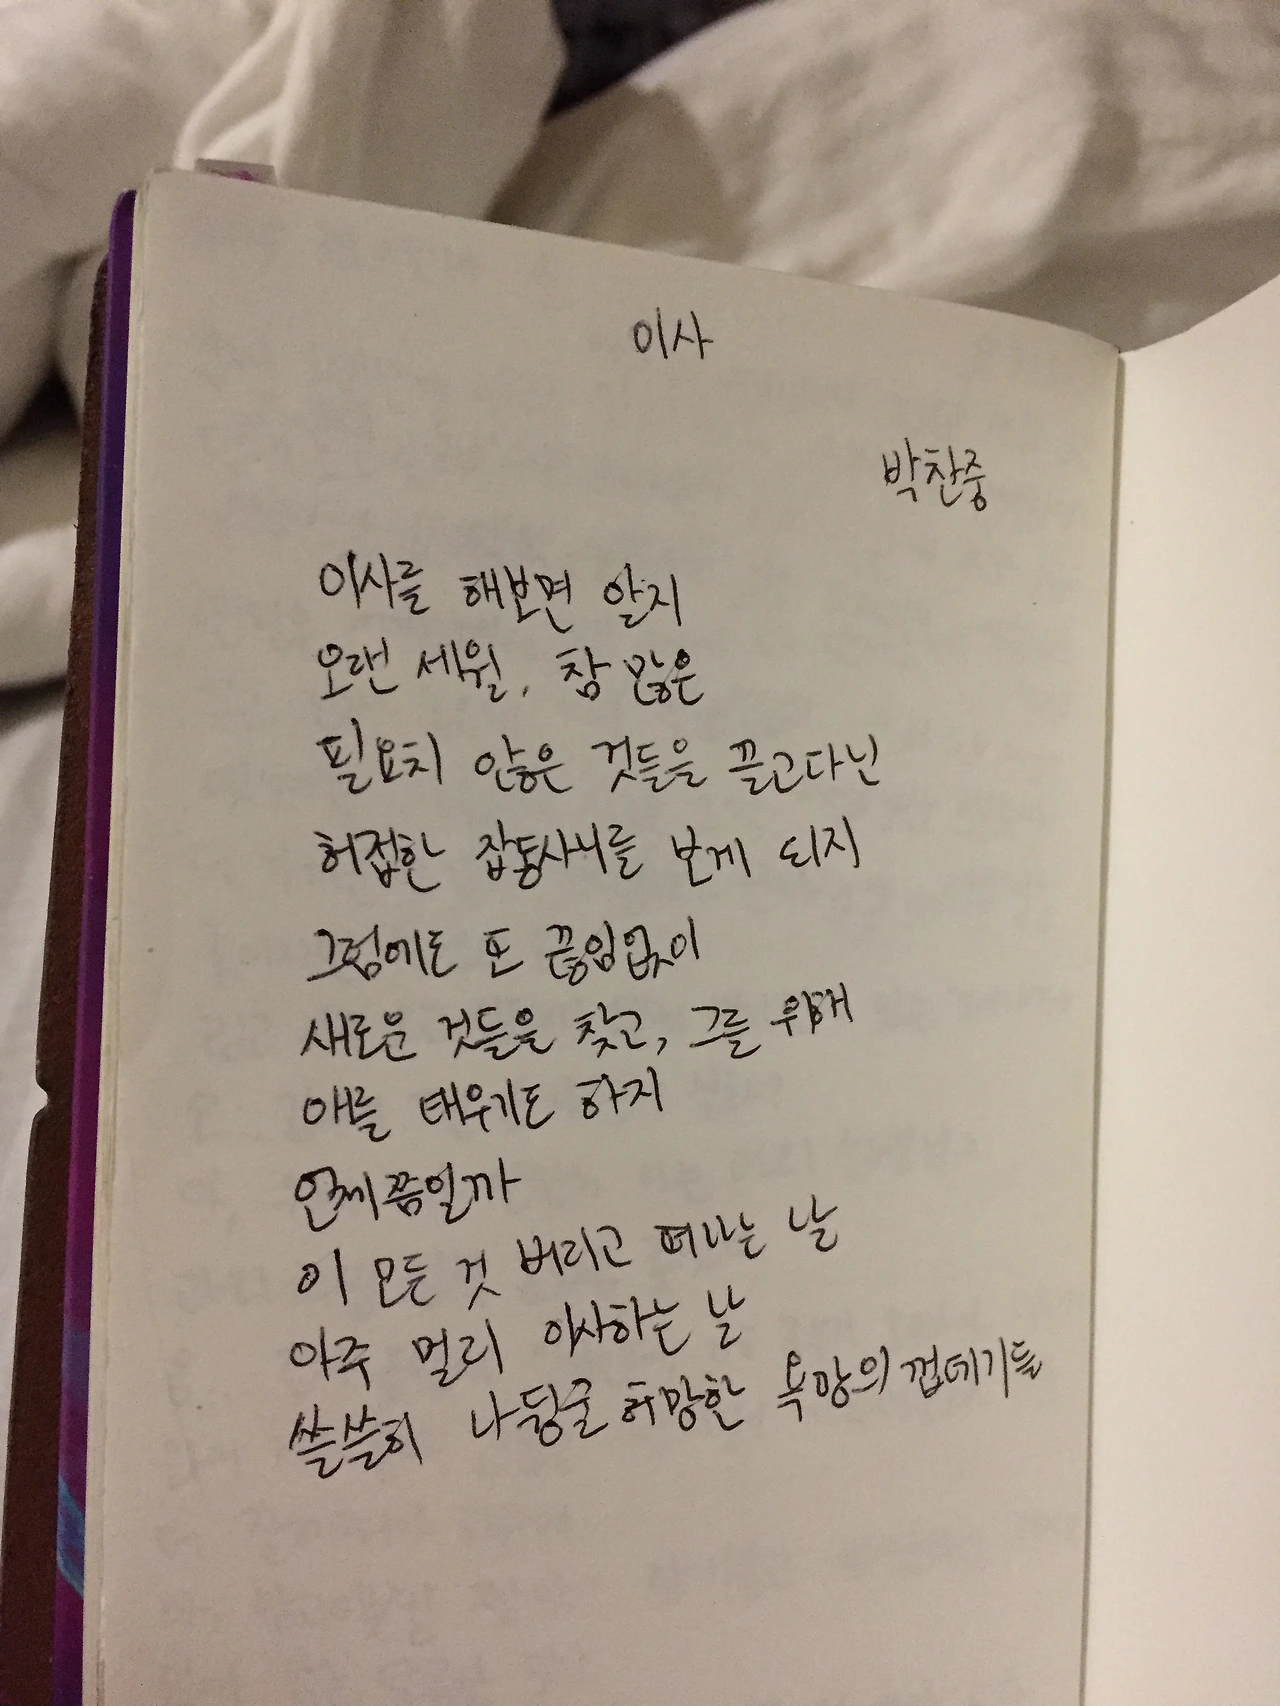 이사
박찬중
이사를 해보면 알지
오랜 세월, 참 많은
필요치 않은 것들을 끌고다닌
허접한 잡동사니를 보게 되지
그럼에도 또 끊임없이
새로운 것들을 찾고, 그를 위해
애를 태우기도 하지
언제쯤일까
이 모든 것 버리고 떠나는 날
아주 멀리 이사하는 날
쓸쓸히 나뒹굴 허망한 욕망의 껍데기들